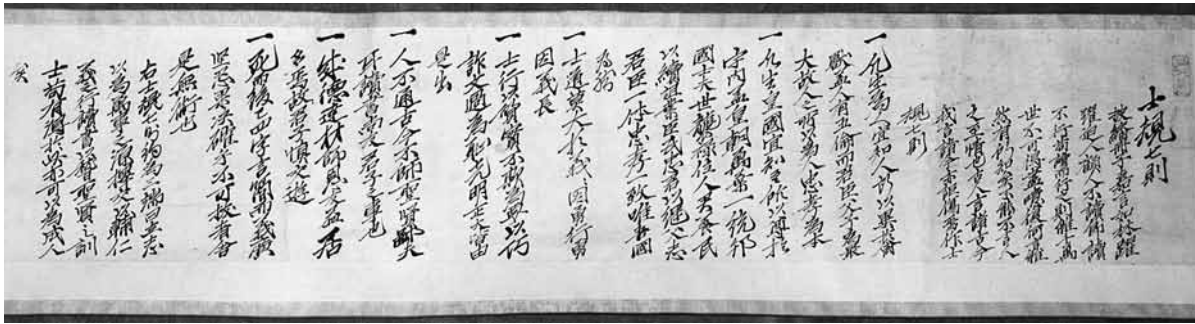 士規七則
披繙冊子嘉言如林躍
躍迫人顧人不讀即讀
不行苟讀行之則雖千萬
世不可得盡噫復何言雖
然有所知矣不能不言人
之至情也古人言諸古今
我言諸今亦詎傷焉作士
規七則
一凡生為人宜知人所以異於禽
獸蓋人有五倫而君臣父子為最
大故人之所以為人忠孝為本
一凡生皇國宜知吾所以尊於
宇内蓋皇朝萬葉一統邦
國士夫世襲禄位人君養民
以續祖業臣民忠君以継父志
君臣一体忠孝一致唯吾國
為然
一士道莫大於義義因勇行勇
因義長
一士行以質實不欺為要以巧
詐文過為恥光明正大皆由
是出
一人不通古今不師聖賢鄙夫
耳讀書尚友君子之事也
一成德達材師恩友益居
多焉故君子慎交遊
一死而後已四字言簡而義廣
堅忍果決確乎不可拔者舍
是無術也
右士規七則約為三端曰立志
以為萬事之源擇交以輔仁
義之行讀書以稽聖賢之訓
士苟有得於此亦可以為成人
矣